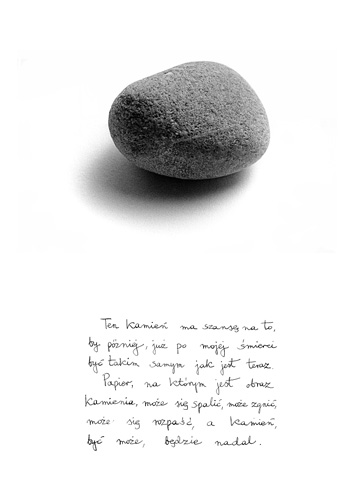 Ten kamień ma szansę na to,
by później, już po mojej śmierci
być takim samym jak jest teraz.
Papier, na którym jest obraz
kamienia, może się spalić, może zgnić,
może się rozpaść, a kamień,
być może, będzie nadal.